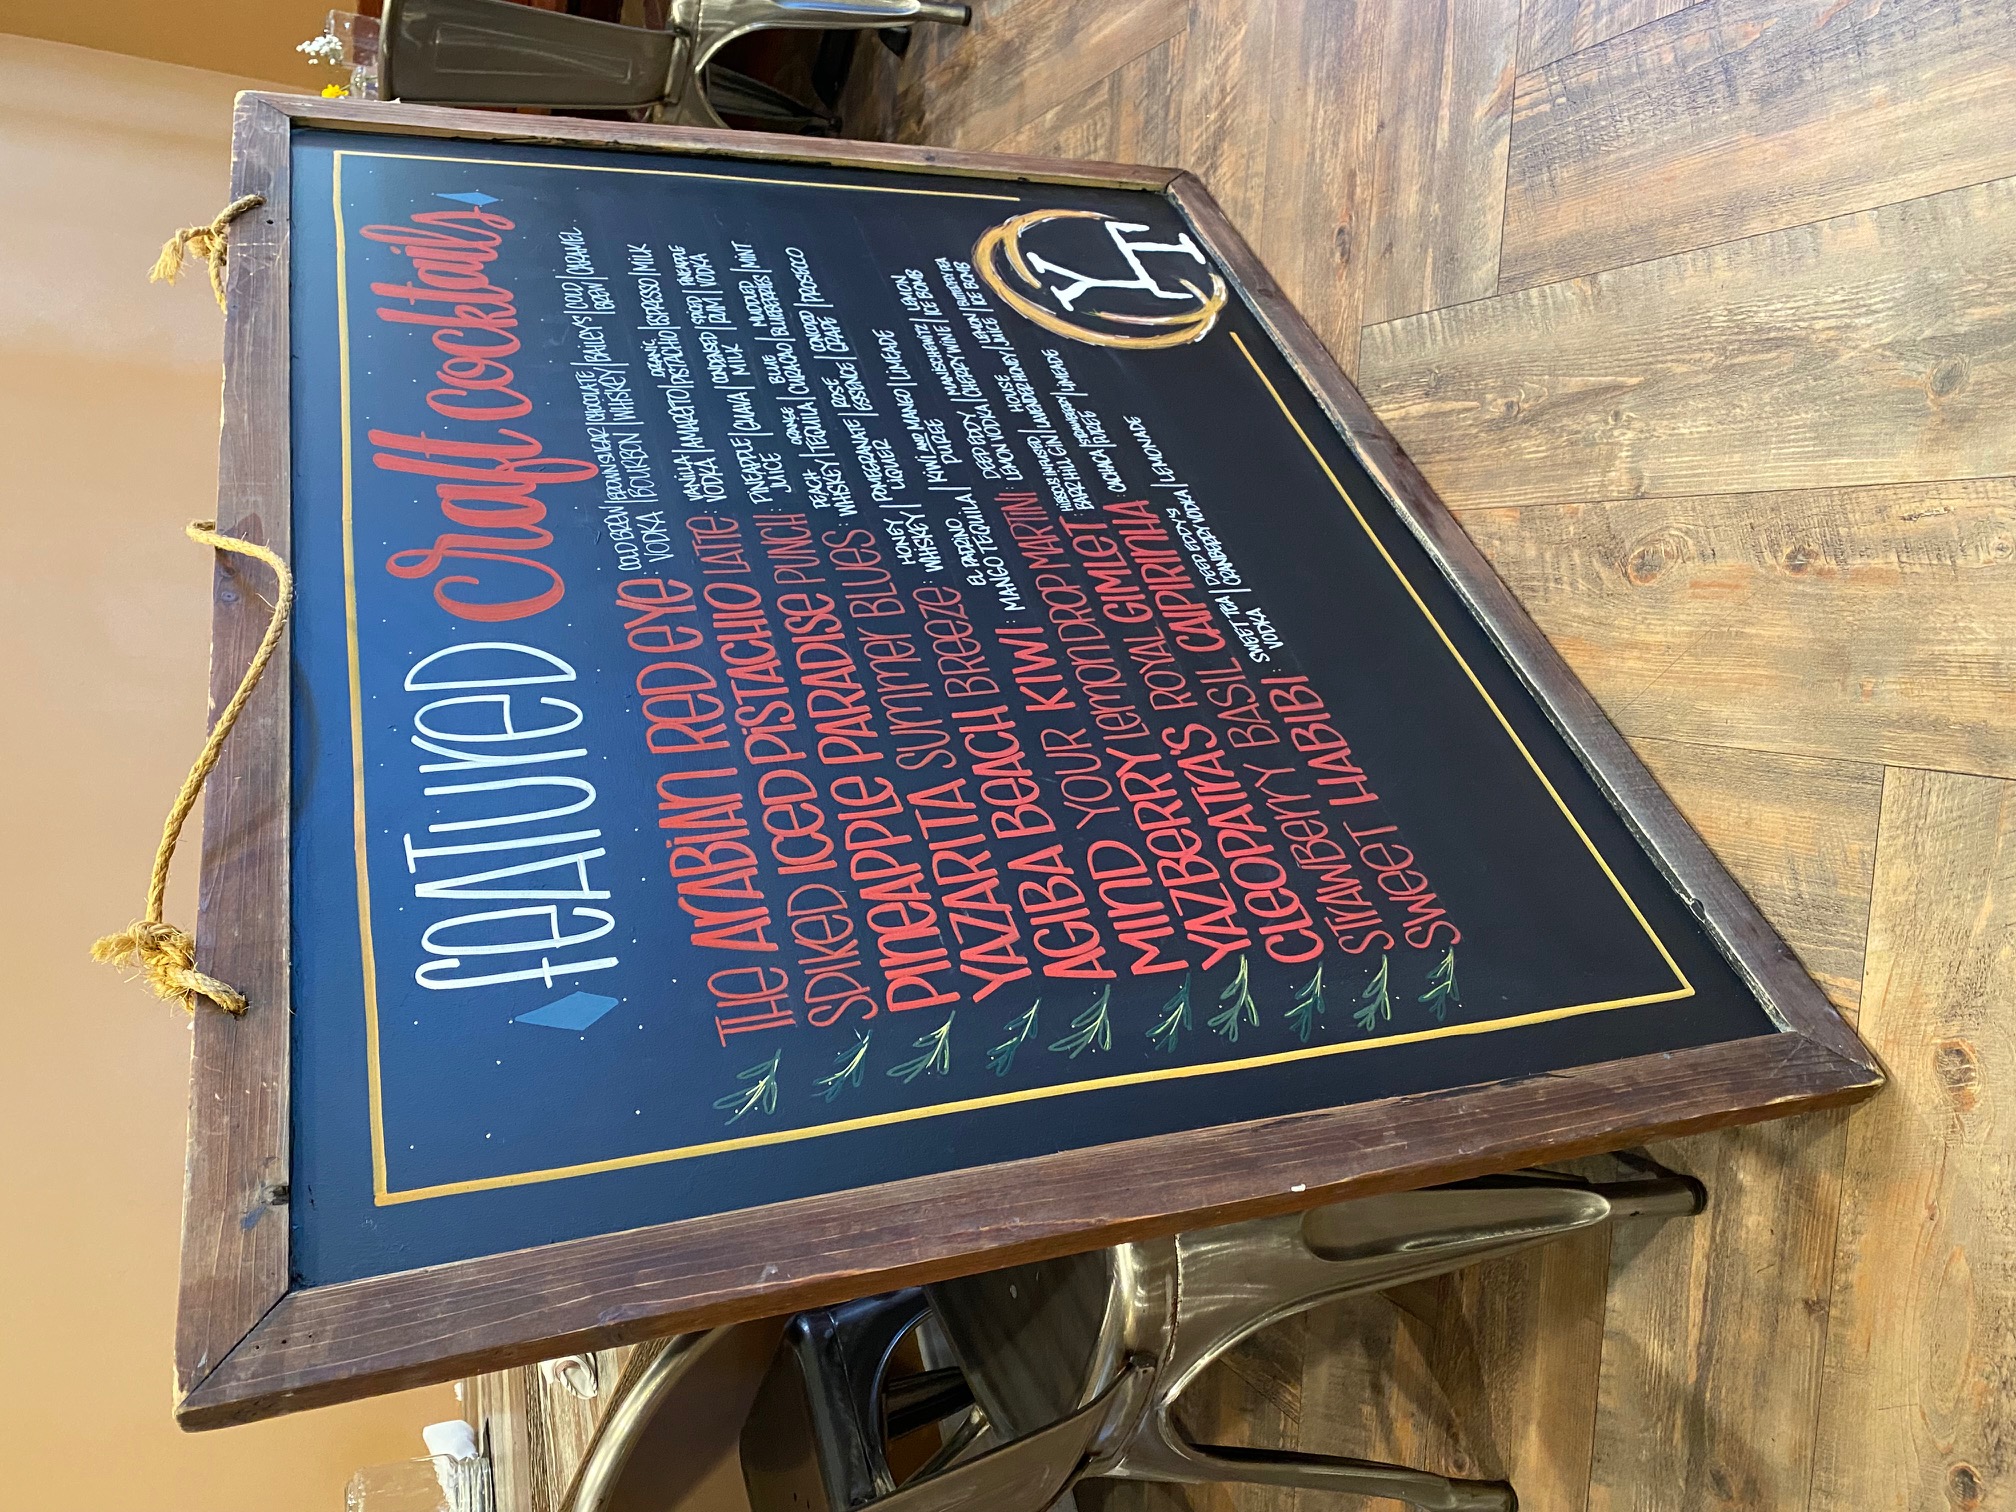 FEATURED Craft Cocktails
THE ARABIAN RED EYE: COLD BREW VODKA | BROWN SUGAR BOURBON | CHOCOLATE WHISKEY | BAILEY'S | COLD BREW | CARAMEL
SPIKED ICED PISTACHIO LATTE: VANILLA VODKA | AMARETO | PISTACHIO | ORGANIC ESPRESSO | MILK
PINEAPPLE PARADISE PUNCH: PINEAPPLE JUICE | GUAVA | CONDENSED MILK | SPICED RUM | PINEAPPLE VODKA
YAZARITA SUMMER BLUES: PEACH WHISKEY | ORANGE TEQUILA | BLUE CURACAO | MUDDLED BLUEBERRIES | MINT
AGIBA BEACH BREEZE: HONEY WHISKEY | POMEGRANATE LIQUER | ROSE ESSENCE | CONCORD GRAPE | PROSECCO
MIND YOUR KIWI: EL PADRINO MANGO TEQUILA | KIWI AND MANGO PUREE | LIMEADE
YAZBERRY LEMONDROP MARTINI: DEEP EDDY LEMON VODKA | MANISCHEWITZ CHERRY WINE | LEMON ICE BOMB
CLEOPATRA'S ROYAL GIMLET: HIBISCUS INFUSED BARR HILL GIN | HOUSE LAVENDER HONEY | LEMON JUICE | BUTTERFLY PEA ICE BOMB
STRAWBERRY BASIL CAIPIRINHA: CACHACA | STRAWBERRY PUREE | LIMEADE
SWEET HABIBI: SWEET TEA VODKA | DEEP EDDY'S CRANBERRY VODKA | LEMONADE
YLT